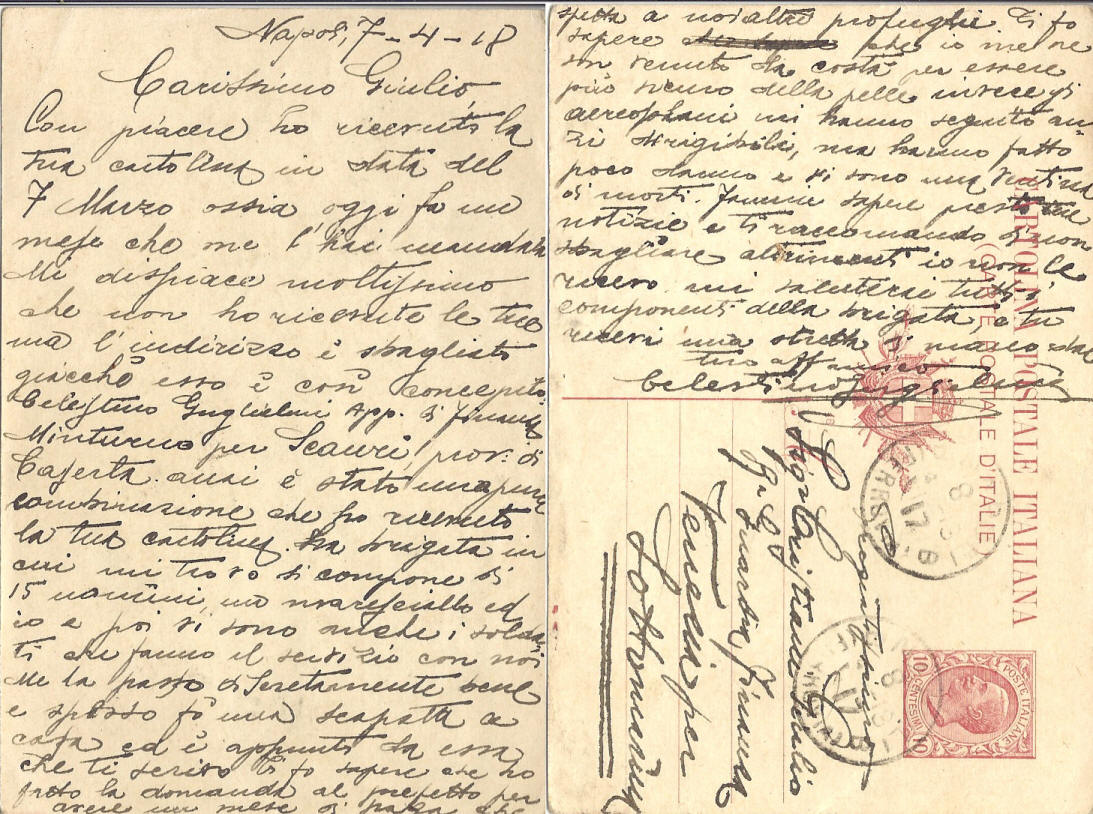 Napoli, 7-4-18
Carissimo Giulio,
Con piacere ho ricevuto la
tua cartolina in data del
7 Marzo ossia oggi fa un
mese che me l'hai mandata
Mi dispiace moltissimo
che non ho ricevute le tue
ma l'indirizzo è sbagliato
giacchè esso è così concepito
Celestino Guglielmi App. di Finanza
Minturno per Scauri, prov. di
Caserta. anzi è stato una pura
combinazione che ho ricevuto
la tua cartolina. La brigata in
cui mi trovo si compone di
15 uomini, un maresciallo ed
io e poi vi sono anche i solda
ti che fanno il servizio con noi
Me la passo discretamente bene
e spesso fò una scapata a
casa ed è appunto da essa
che ti scrivo Ti fo sapere che ho
fatto la domanda al prefetto per
avere un mese di paga che
spetta a noialtri profughi. Ti fo
sapere che io me ne
son venuto da costà per essere
più sicuro della pelle invece gli
aereoplani mi hanno seguito an-
zi dirigibili, ma hanno fatto
poco danno e vi sono una ventina
di morti. Fammi sapere presto tue
notizie e ti raccomando di non
sbagliare altrimenti io non le
ricevo. mi saluterai tutti i
componenti della brigata, e tu
ricevi una stretta di mano dal
tuo aff. amico
Celestino Guglielmi
CARTOLINA POSTALE ITALIANA
(CARTE POSTALE D'ITALIE)
Sig. Cristiano Giulio
R. G. di Finanza
Brigata
per
POSTE ITALIANE
10 CENTESIMI 10